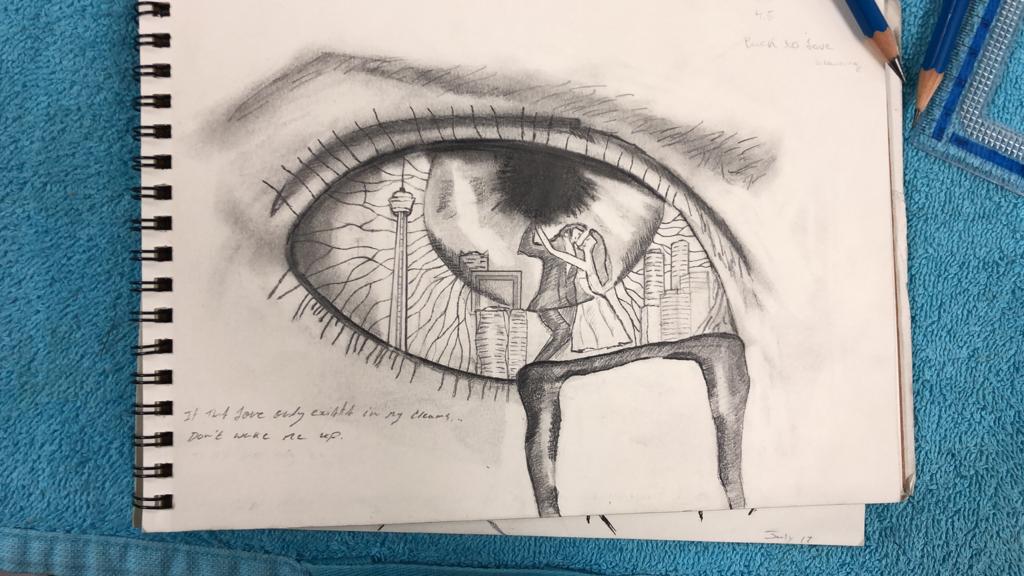 4.5
Back to Love
If that Love only exists in my dreams...
Don't wake me up.
July 17